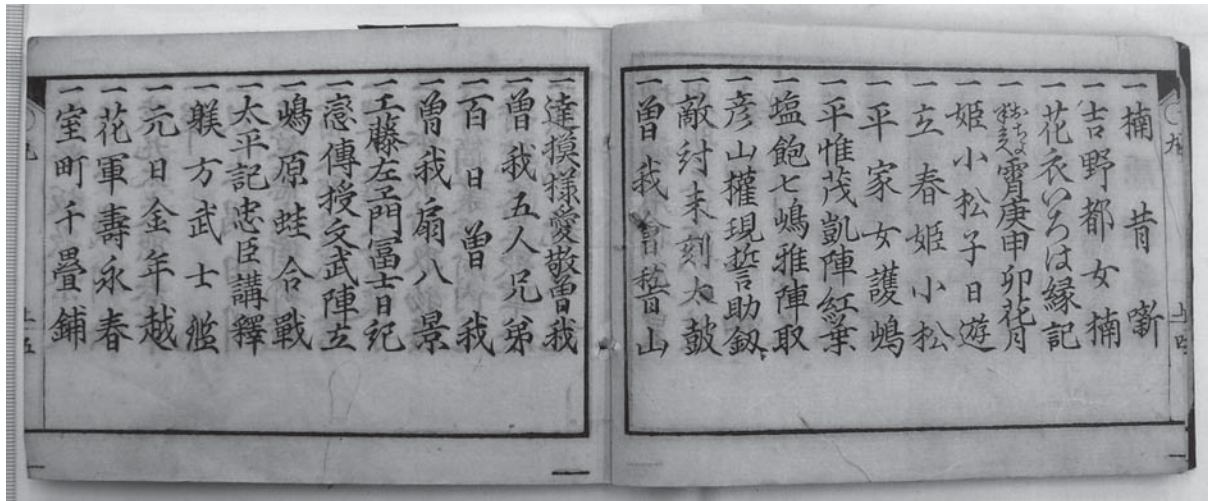 一楠昔噺
一吉野都女楠
一花衣いろは縁記
一おちよ半兵へ宵庚申卯花月
一姫小松子日遊
一立春姫小松
一平家女護嶋
一平惟茂凱陣紅葉
一塩飽七嶋雅陣取
一彦山權現誓助釼
一敵討未刻太皷
一曽我會稽山
一達摸様愛敬曽我
一曽我五人兄弟
一百日曽我
一曽我扇八景
一工藤左エ門冨士日記
一戀傳授文武陣立
一嶋原蛙合戰
一太平記忠臣講釋
一躾方武士鑑
一元日金年越
一花軍壽永春
一室町千疊鋪